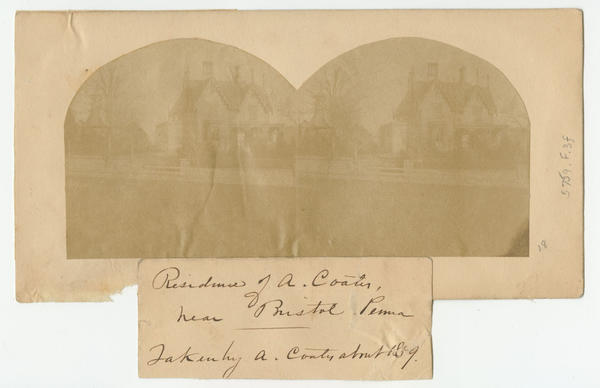 Residence of A. Coates,
near Bristol Penna
Taken by A. Coates about 1859.
5759.F.3f
28